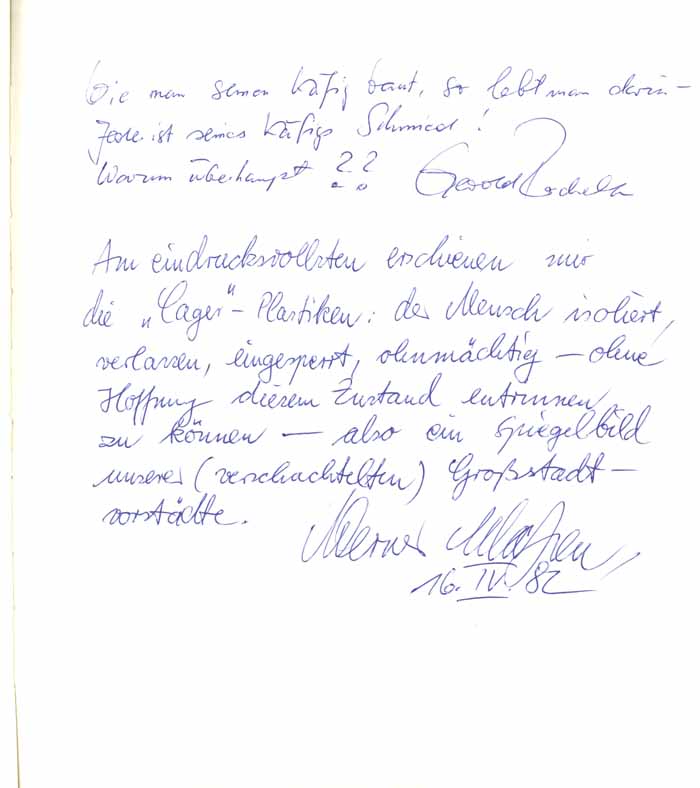 Wie man seinen Käfig baut, so lebt man darin –
Jeder ist seines Käfigs Schmied!
Warum überhaupt ??  Gerold
Am eindrucksvollsten erschienen mir
die „Lager“-Plastiken: der Mensch isoliert,
verlassen, eingesperrt, ohnmächtig – ohne
Hoffnung diesem Zustand entrinnen
zu können – also ein Spiegelbild
unserer (verschachtelten) Großstadt-
vorstädte.
Werner
16. IV. 82